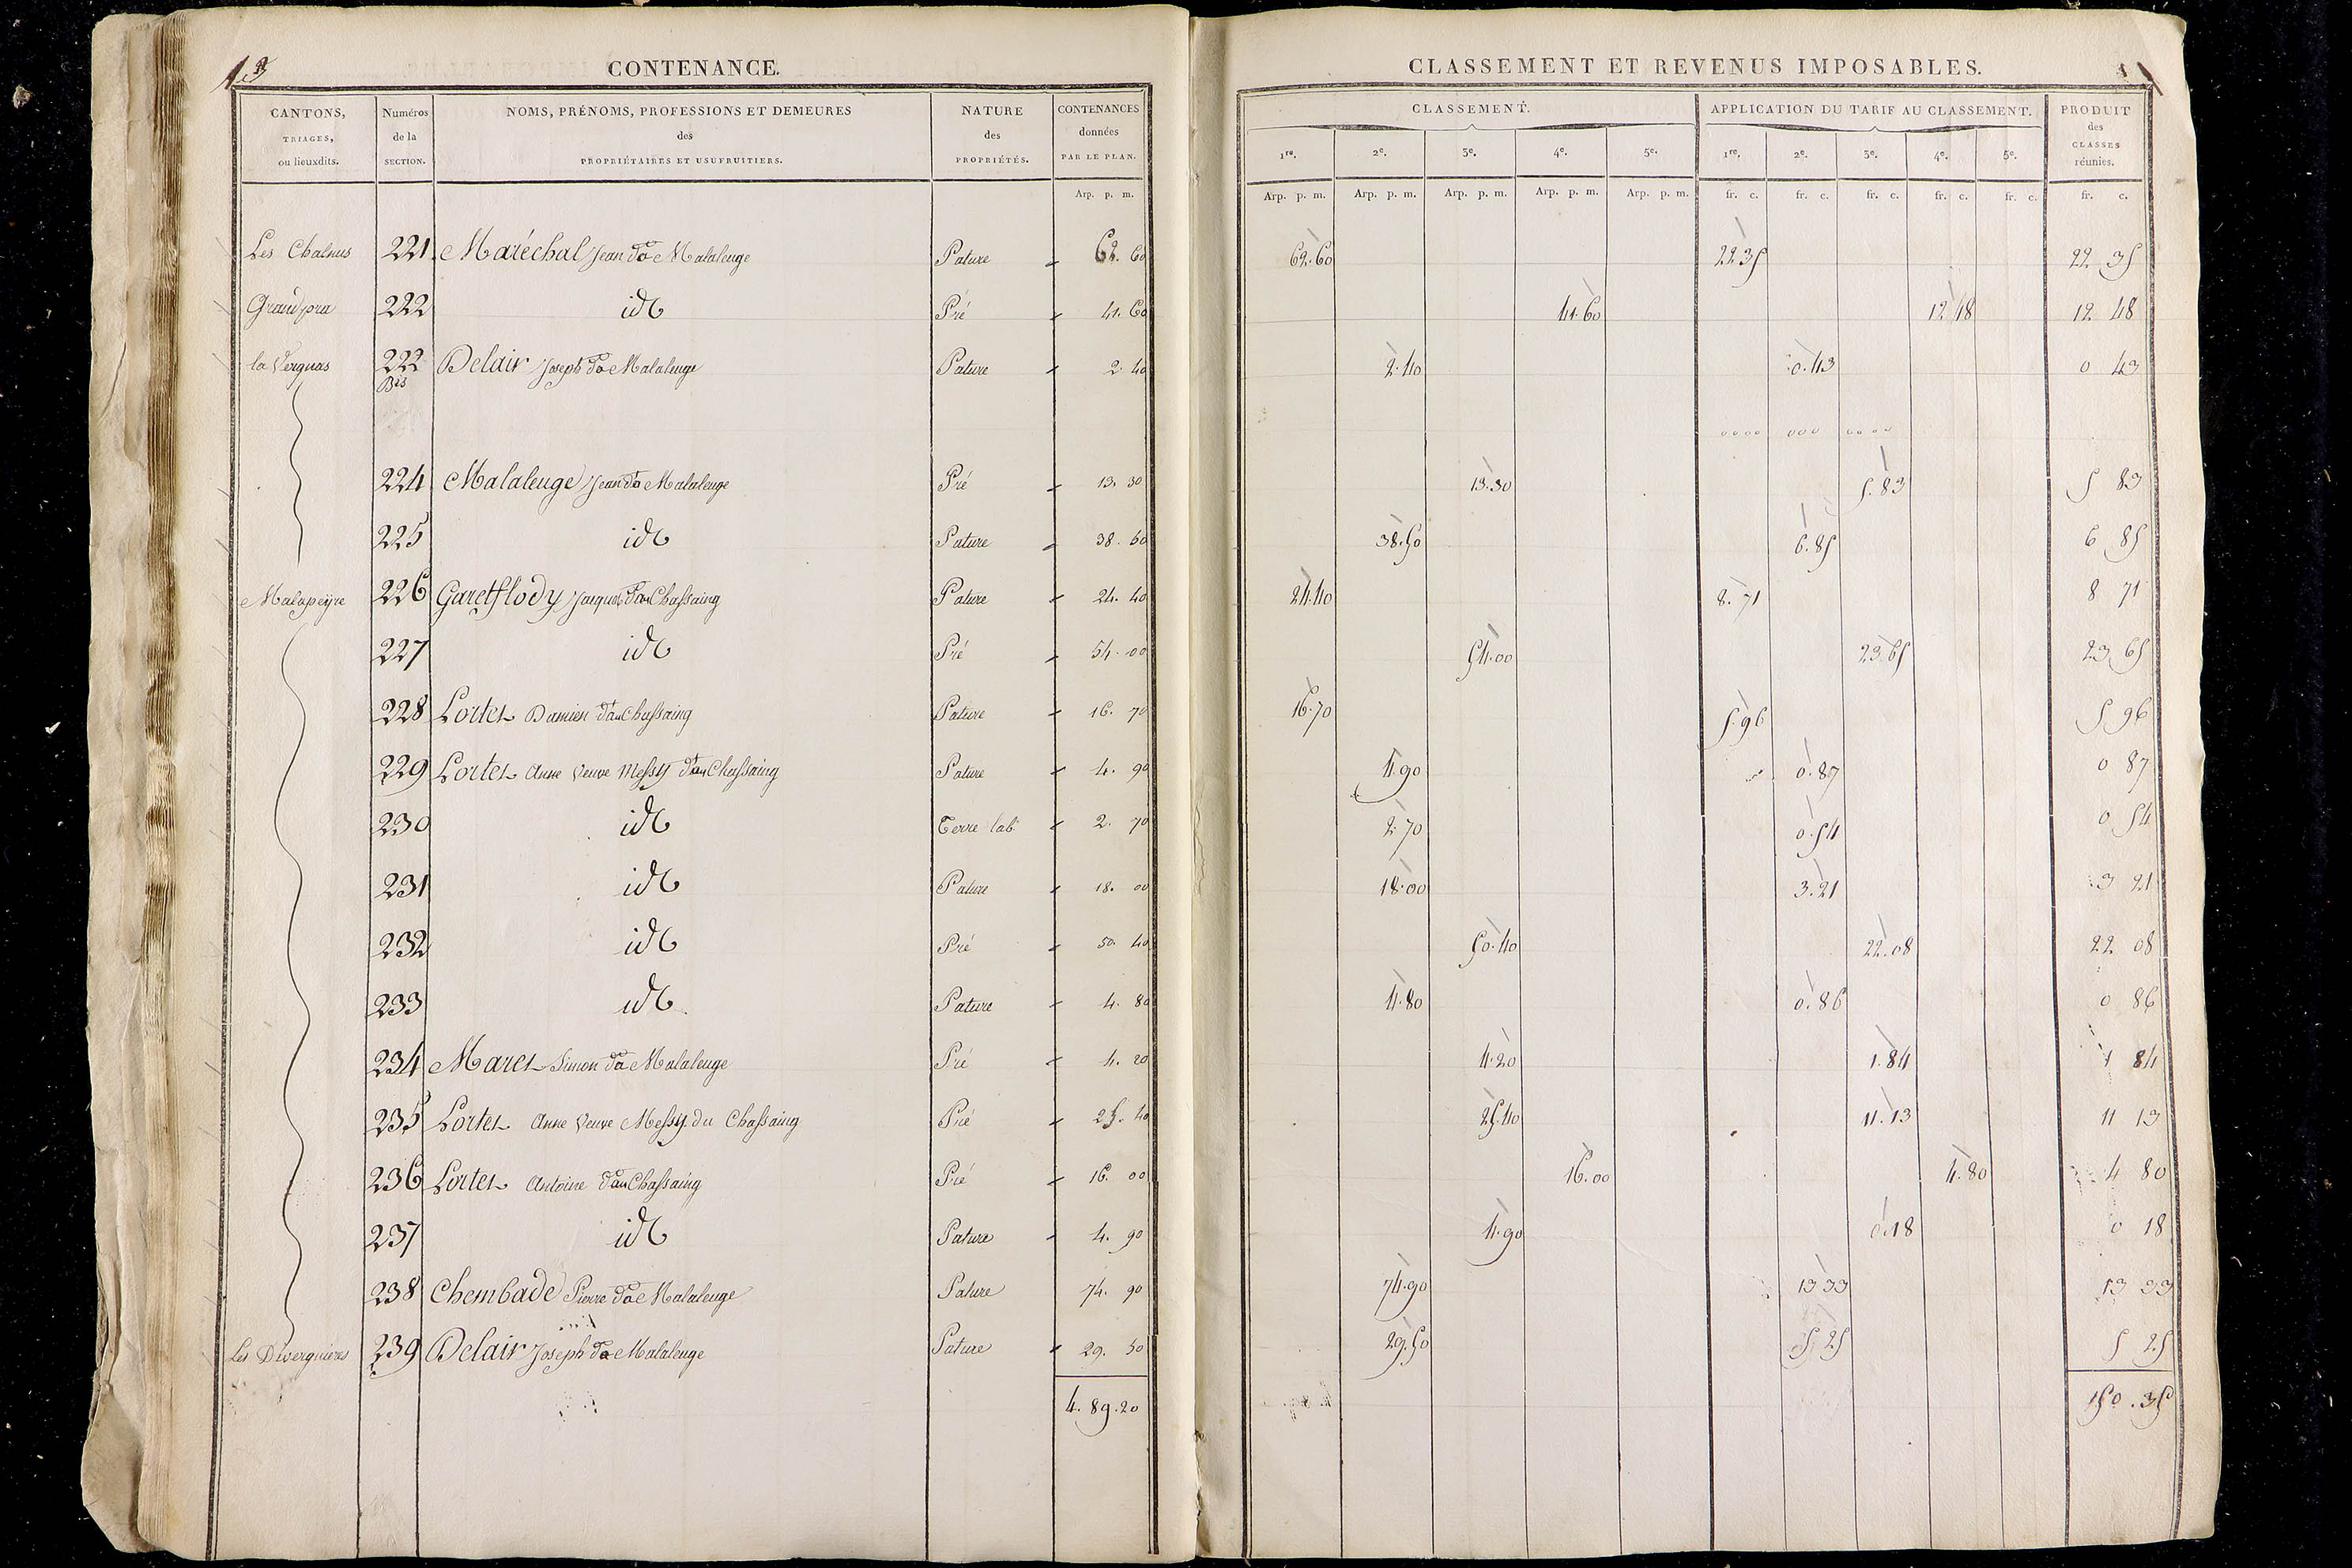 CONTENANCE.
CANTONS, TRIAGES, ou lieuxdits. Numéros de la SECTION. NOMS, PRÉNOMS, PROFESSIONS ET DEMEURES des PROPRIÉTAIRES ET USUFRUITIERS. NATURE des PROPRIÉTÉS. CONTENANCES données PAR LE PLAN.
Arp. p. m.
221 Maréchal Jean d a Malaleuge Pature 62. 60
222 id Pré 41. 60
222 Bis Delair Joseph d a Malaleuge Pature 2. 40
224 Malaleuge Jean d a Malaleuge Pré 13. 30
225 id Pature 38. 60
Malapeÿre 226 Jacques d au Chassaing Pature 24. 40
227 id Pré 54. 00
228 Damien d au Chassaing Pature 16. 70
229 Anne Veuve Messy d au Chassaing Pature 4. 90
230 id Terre lab 2. 70
231 id Pature 18. 00
232 id Pré 50. 40
233 id Pature 4. 80
234 Simon d a Malaleuge Pré 4. 20
235 Anne Veuve Messy du Chassaing Pré 25. 40
236 Antoine d au Chassaing Pré 16. 00
237 id Pature 4. 90
238 Chembade Pierre d a Malaleuge Pature 74. 90
239 Delair Joseph d a Malaleuge Pature 29. 50
4. 89. 20
CLASSEMENT ET REVENUS IMPOSABLES.
CLASSEMENT. APPLICATION DU TARIF AU CLASSEMENT. PRODUIT des CLASSES réunies.
1re. 2e. 3e. 4e. 5e. 1re. 2e. 3e. 4e. 5e.
Arp. p. m. Arp. p. m. Arp. p. m. Arp. p. m. Arp. p. m. fr. c. fr. c. fr. c. fr. c. fr. c. fr. c.
62. 60 22 35 22 35
41. 60 12 48 12 48
2. 40 0. 43 0 43
13. 30 5. 83 5 83
38. 50 6. 85 6 85
24. 40 8. 71 8 71
54. 00 23 65 23 65
16. 70 5. 96 5 96
4. 90 0. 87 0 87
2. 70 0. 54 0 54
18. 00 3. 21 3 21
50. 40 22. 08 22 08
4. 80 0. 86 0 86
4. 20 1. 84 1 84
25. 40 11. 13 11 13
16. 00 4. 80 4 80
4. 90 0. 18 0 18
74. 90 13 33 13 33
29. 50 5 25 5 25
150. 35